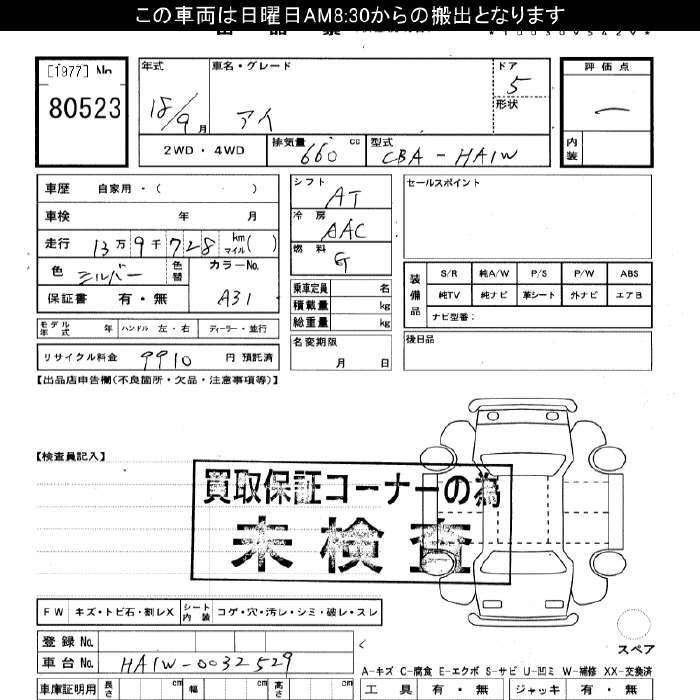 この車両は日曜日AM8:30からの搬出となります
[1977] No.
80523
年式 18/9 月
車名・グレード アイ
ドア 5
形状
評価点 —
内装
2WD・4WD
排気量 660 cc
型式 CBA-HA1W
車歴 自家用・( )
車検 年 月
走行 13万9千728 km マイル( )
色 シルバー 色替
カラーNo. A31
保証書 有・無
モデル年式 年 ハンドル 左・右 ディーラー・並行
リサイクル料金 9910 円 預託済
シフト AT
冷房 AAC
燃料 G
乗車定員 名
積載量 kg
総重量 kg
名変期限 月 日
セールスポイント
装備品
S/R 純A/W P/S P/W ABS
純TV 純ナビ 革シート 外ナビ エアB
ナビ型番：
後日品
【出品店申告欄(不良箇所・欠品・注意事項等)】
【検査員記入】
買取保証コーナーの為
未検査
FW キズ・トビ石・割レX シート内装 コゲ・穴・汚レ・シミ・破レ・スレ
登録No.
車台No. HA1W-0032529
スペア
A-キズ C-腐食 E-エクボ S-サビ U-凹ミ W-補修 XX-交換済
車庫証明用 長さ cm 幅 cm 高さ cm
工具 有・無 ジャッキ 有・無